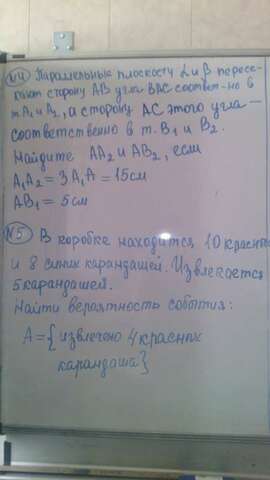 №4 Параллельные плоскости α и β пересе-
кают сторону AB угла BAC соответ-но в
т. A₁ и A₂, а сторону AC этого угла —
соответственно в т. B₁ и B₂.
Найдите AA₂ и AB₂, если
A₁A₂ = 3A₁A = 15см
AB₁ = 5см
№5 В коробке находится 10 красных
и 8 синих карандашей. Извлекается
5 карандашей.
Найти вероятность события:
A = {извлечено 4 красных
карандаша}